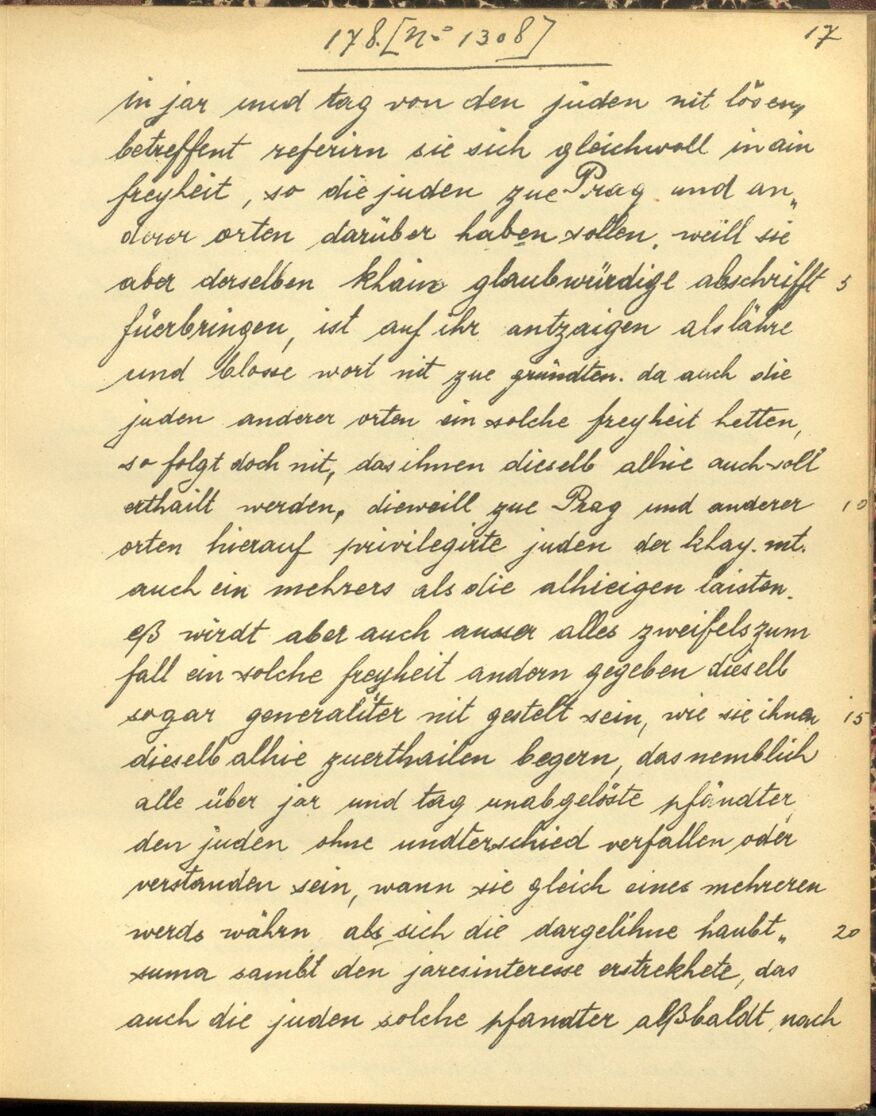 178. [No 1308] 17
in jar und tag von den juden nit lösen,
betreffent referirn sie sich gleichwoll in ain
freyheit, so die juden zue Prag und an„
derer orten darüber haben sollen, weill sie
aber derselben khain glaubwürdige abschrifft 5
füerbringen, ist auf ihr antzaigen als lähre
und blosse wort nit zue gründten. da auch die
juden anderer orten ein solche freyheit hetten,
so folgt doch nit, das ihnen dieselb alhie auch soll
erthailt werden, dieweill zue Prag und anderer 10
orten hierauf privilegirte juden der khay. mt.
auch ein mehrers als die alhieigen laisten.
eß wirdt aber auch ausser alles zweifels zum
fall ein solche freyheit andern gegeben dieselb
so gar generaliter nit gestelt sein, wie sie ihnen 15
dieselb alhie zuerthailen begern, das nemblich
alle über jar und tag unabgelöste pfändter
den juden ohne undterschied verfallen oder
verstanden sein, wann sie gleich eines mehreren
werds währn, als sich die dargelihne haubt„ 20
suma sambt den jaresinteresse erstrekhete, das
auch die juden solche pfandter alßbaldt nach